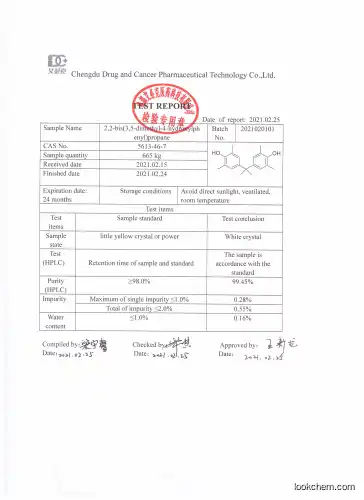 Chengdu Drug and Cancer Pharmaceutical Technology Co.,Ltd.
TEST REPORT
Date of report: 2021.02.25
Sample Name 2,2-bis(3,5-dimethyl-4-hydroxyph Batch 2021020101
enyl)propane No.
CAS No. 5613-46-7
Sample quantity 665 kg
Received date 2021.02.15
Finished date 2021.02.24
HO OH
Expiration date: Storage conditions Avoid direct sunlight, ventilated,
24 months room temperature
Test items
Test Sample standard Test conclusion
items
Sample little yellow crystal or power White crystal
state
Test Retention time of sample and standard The sample is
(HPLC) accordance with the
standard
Purity ≥98.0% 99.45%
(HPLC)
Impurity Maximum of single impurity ≤1.0% 0.28%
Total of impurity ≤2.0% 0.55%
Water ≤1.0% 0.16%
content
Compiled by: Checked by: Approved by:
Date: 2021.02.25 Date: 2021.02.25 Date: 2021.02.25
lookchem.com